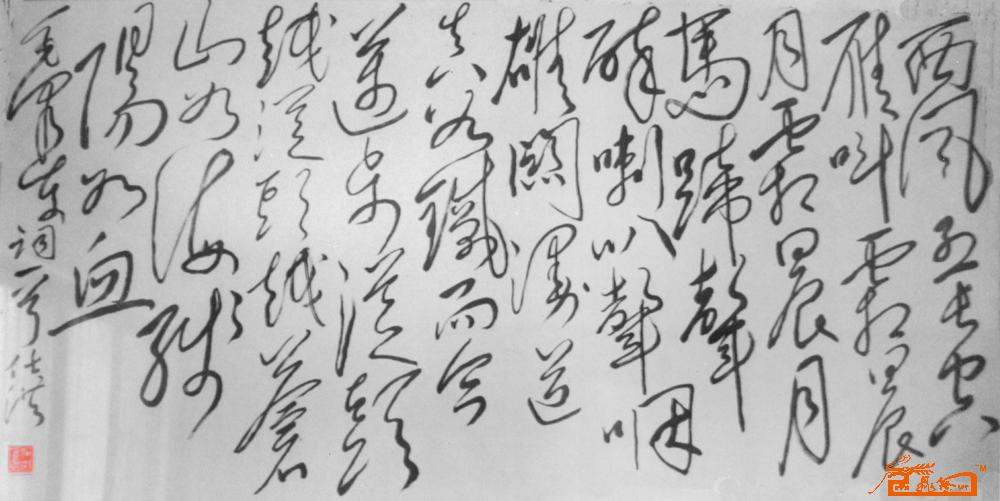 西風烈長空
雁叫霜晨
月霜晨月
馬蹄聲
碎喇叭聲咽
雄關漫道
真如鐵而今
邁步從頭
越從頭越蒼
山如海殘
陽如血
毛澤東詞一首